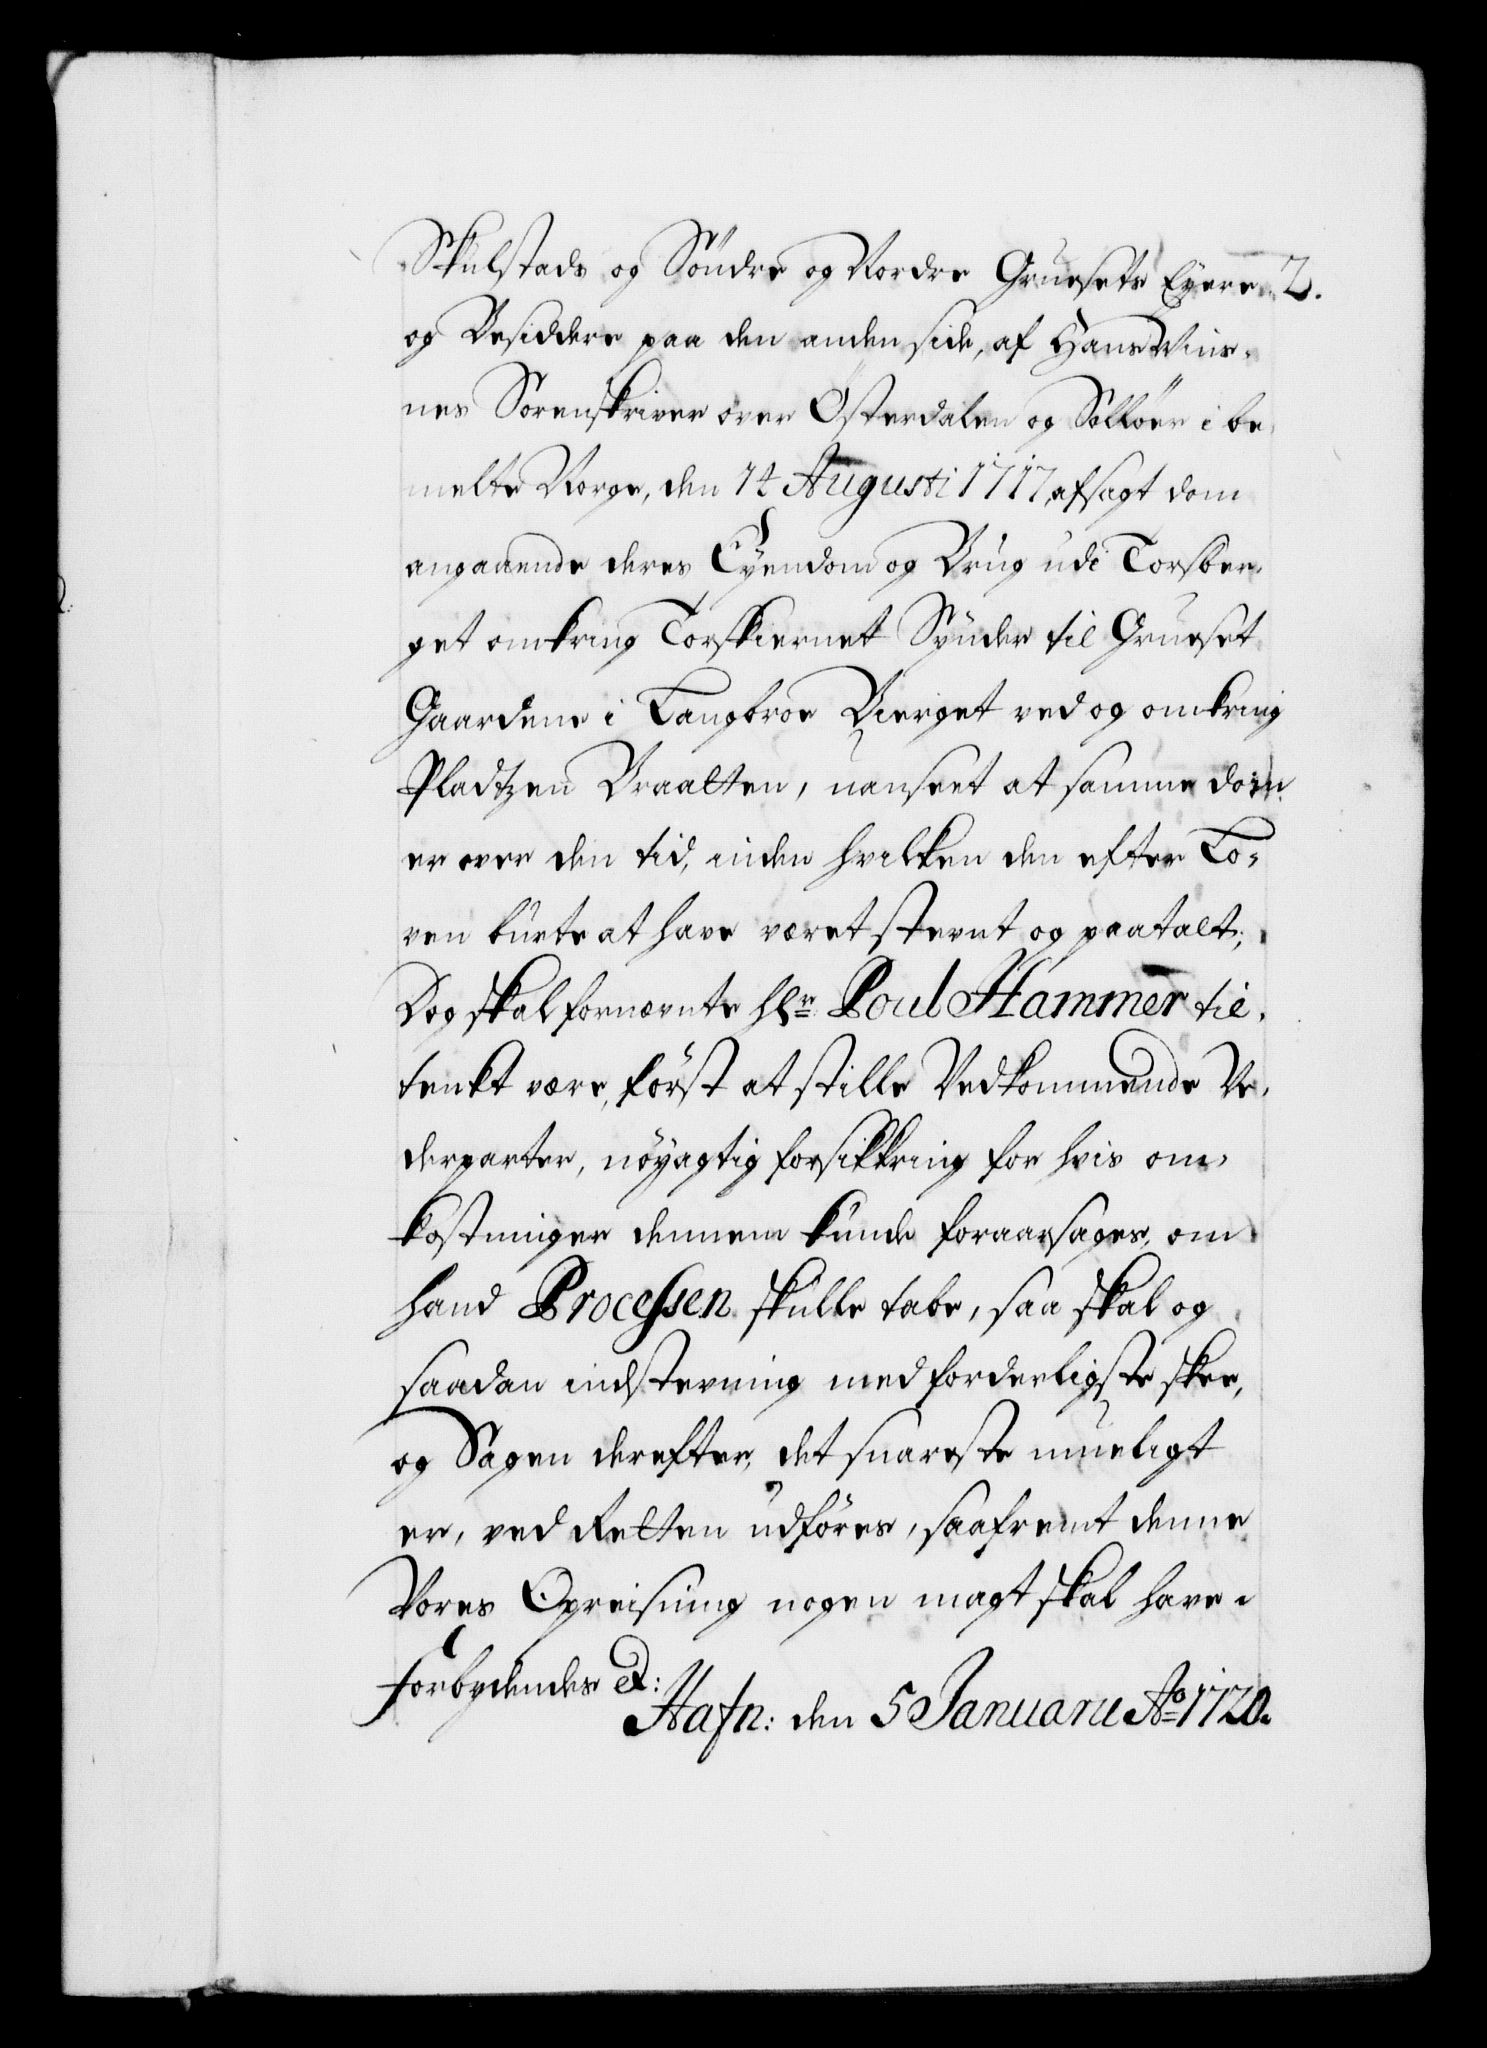 Skulstads og Söndre og Nordre Gruesets Eyere 2.
og Besiddere paa den anden side, af Hans Mues-
nes Sorenskriver over Österdalen og Sollöer i be
melte Norge, den 14 Augusti 1717, afsagt dom
angaaende deres Eyendom og Brug udi Torsber-
get omkring Torskiernet Synder til Grueset
Gaardene i Langbroe Bierget ved og omkring
Pladtzen Braatten, uanseet at samme dom
er over den tid, inden hvilken den efter Lo-
ven burte at have været stevnt og paatalt;
Dog skal fornevnte Hr. Poul Hammer til-
tenkt være, först at stille Vedkommende Ve-
derparter, nöyagtig forsikkring for hvis om-
kostninger dennem kunde foraarsages, om
hand Processen skulle tabe, saa skal og
saadan indstevning med forderligste skee,
og Sagen derefter, det snareste mueligt
er, ved Retten udföres, saafremt denne
Vores Opreisning nogen magt skal have.
Forbydendes &:
Hafn: den 5 Januarii Ao 1720.